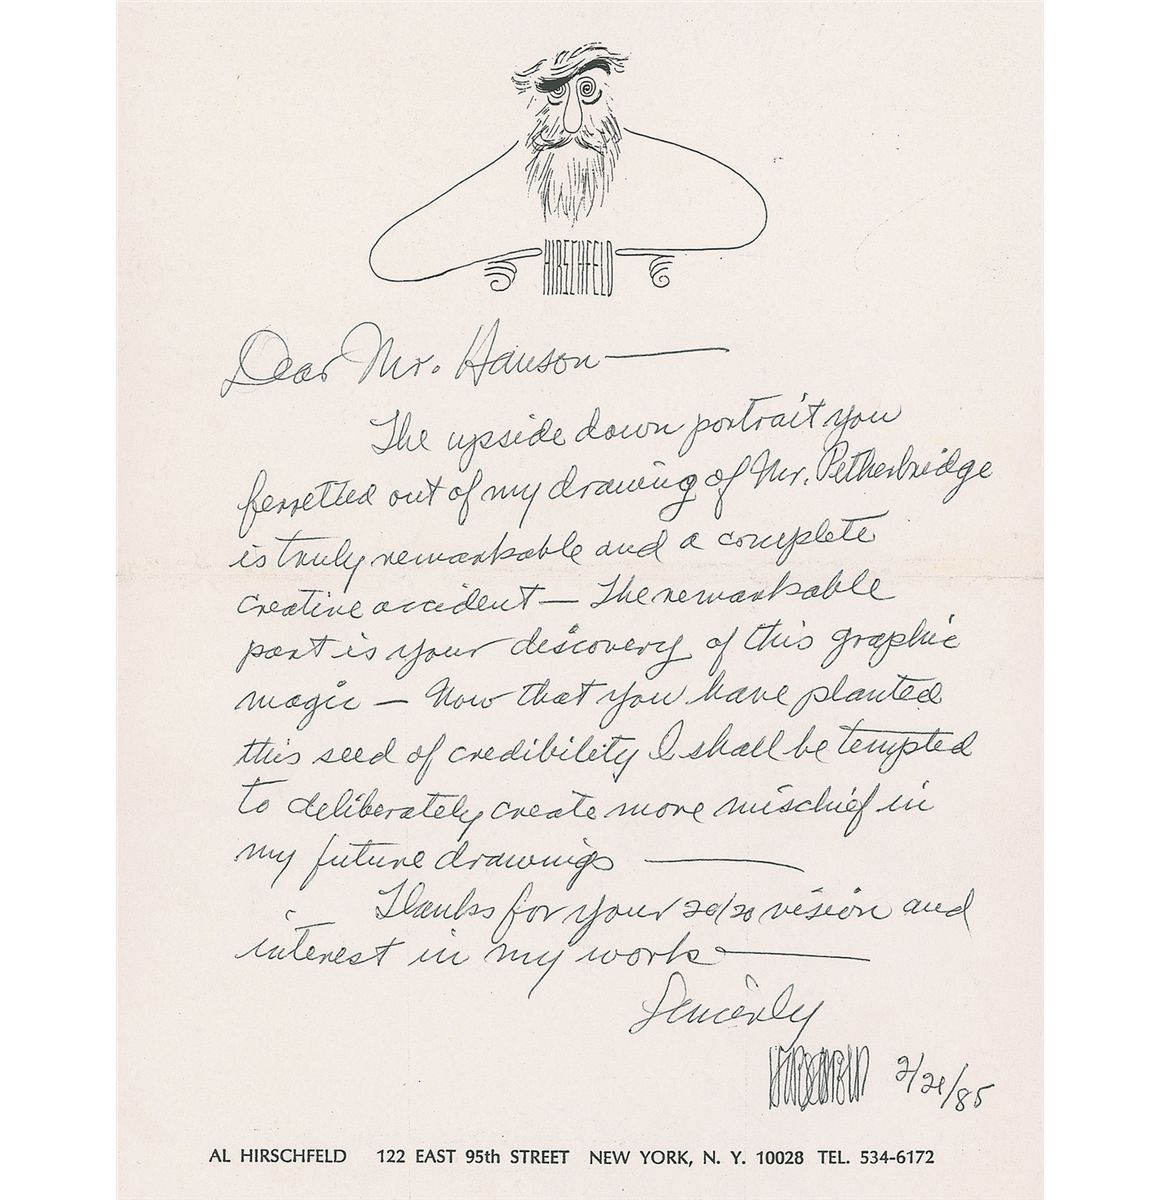 HIRSCHFELD
Dear Mr. Hanson —
The upside down portrait you
ferretted out of my drawing of Mr. Petherbridge
is truly remarkable and a complete
creative accident — The remarkable
part is your discovery of this graphic
magic — Now that you have planted
this seed of credibility I shall be tempted
to deliberately create more mischief in
my future drawings —
Thanks for your 20/20 vision and
interest in my work —
Sincerely
HIRSCHFELD 2/21/85
AL HIRSCHFELD 122 EAST 95th STREET NEW YORK, N. Y. 10028 TEL. 534-6172